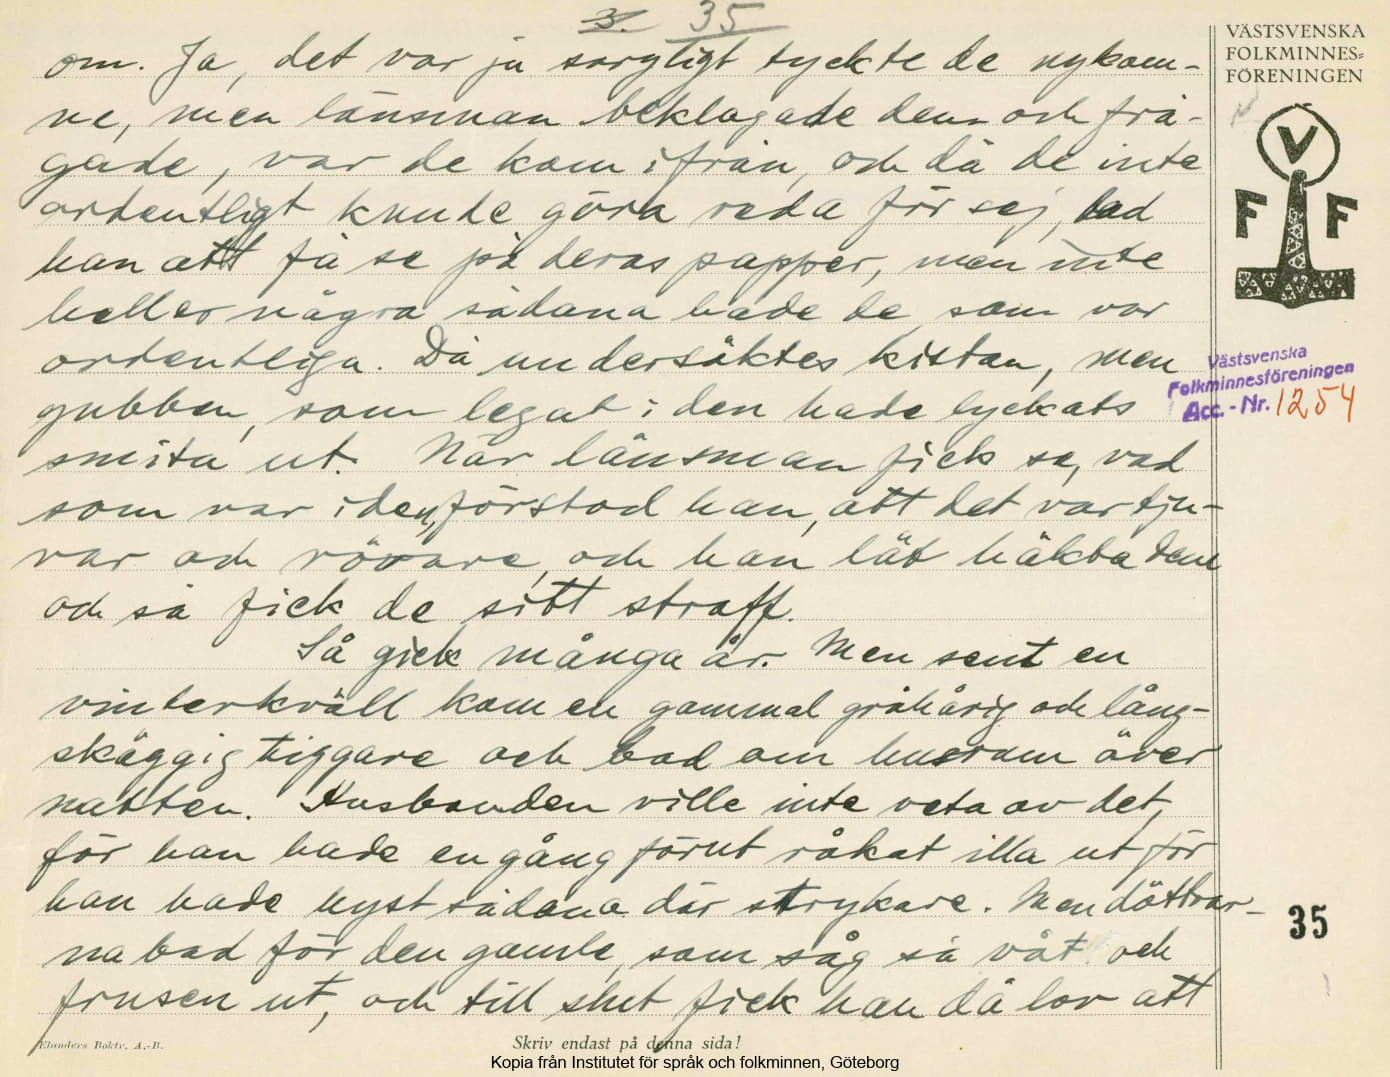 3. 35
om. Ja, det var ju sorgligt tyckte de nykom-
ne, men länsman beklagade dem och frå-
gade, var de kom ifrån, och då de inte
ordentligt kunde göra reda för sej, bad
han att få se på deras papper, men inte
heller några sådana hade de, som var
ordentliga. Då undersöktes kistan, men
gubben, som legat i den hade lyckats
smita ut. När länsman fick se, vad
som var i den, förstod han, att det var tju-
var och rövare, och han lät häkta dem
och så fick de sitt straff.
Så gick många år. Men sent en
vinterkväll kom en gammal gråhårig och lång-
skäggig tiggare och bad om husrum över
natten. Husbonden ville inte veta av det,
för han hade en gång förut råkat illa ut för
han hade hyst sådana där strykare. Men döttrar-
na bad för den gamle, som såg så våt och
frusen ut, och till slut fick han då lov att
VÄSTSVENSKA
FOLKMINNES-
FÖRENINGEN
V
F F
Västsvenska
Folkminnesföreningen
Acc.-Nr. 1254
35
Elanders Boktr. A.-B.
Skriv endast på denna sida!
Kopia från Institutet för språk och folkminnen, Göteborg